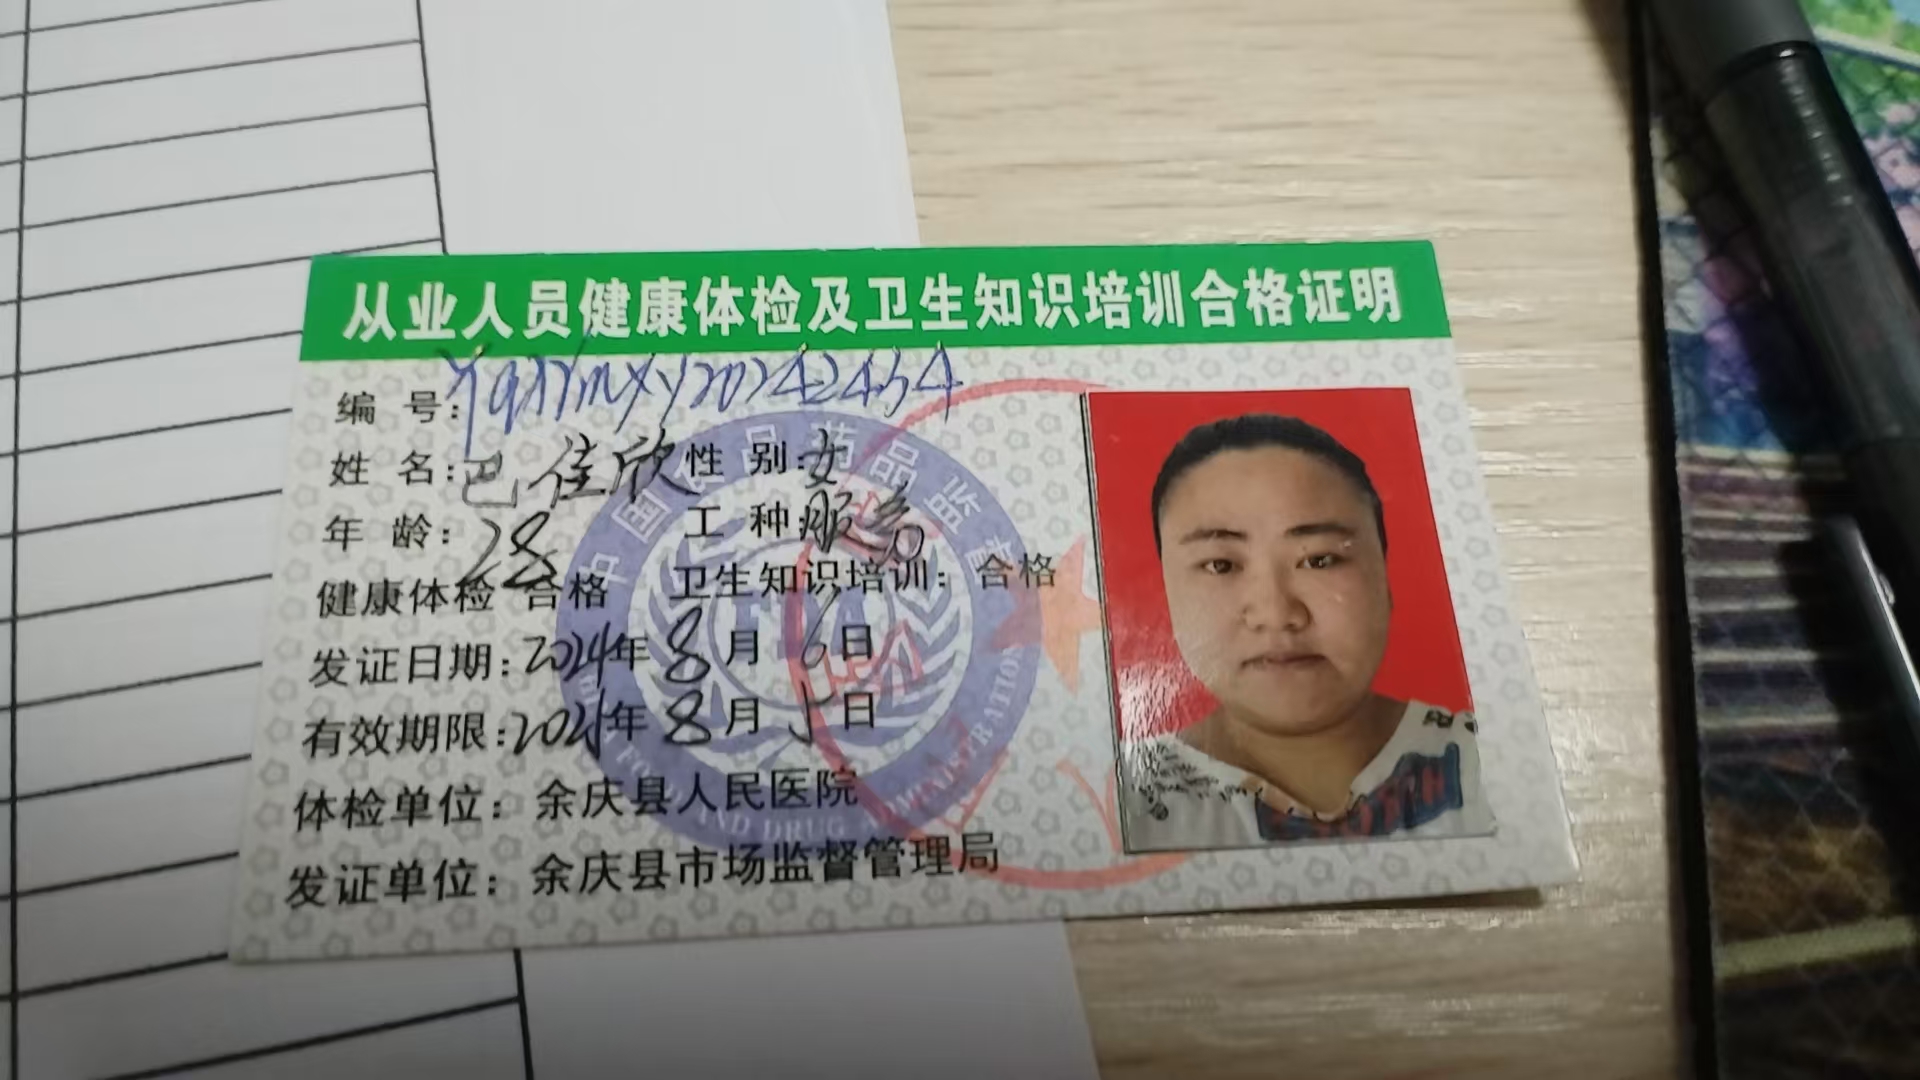 从业人员健康体检及卫生知识培训合格证明
编 号:Yqxrmxy20242434
姓 名:巴佳欣 性 别:女
年 龄:28 工 种:服务
健康体检 合格 卫生知识培训:合格
发证日期:2024年8月6日
有效期限:年8月5日
体检单位:余庆县人民医院
发证单位:余庆县市场监督管理局
中国食品药品监督
FOOD AND DRUG ADMINISTRATION